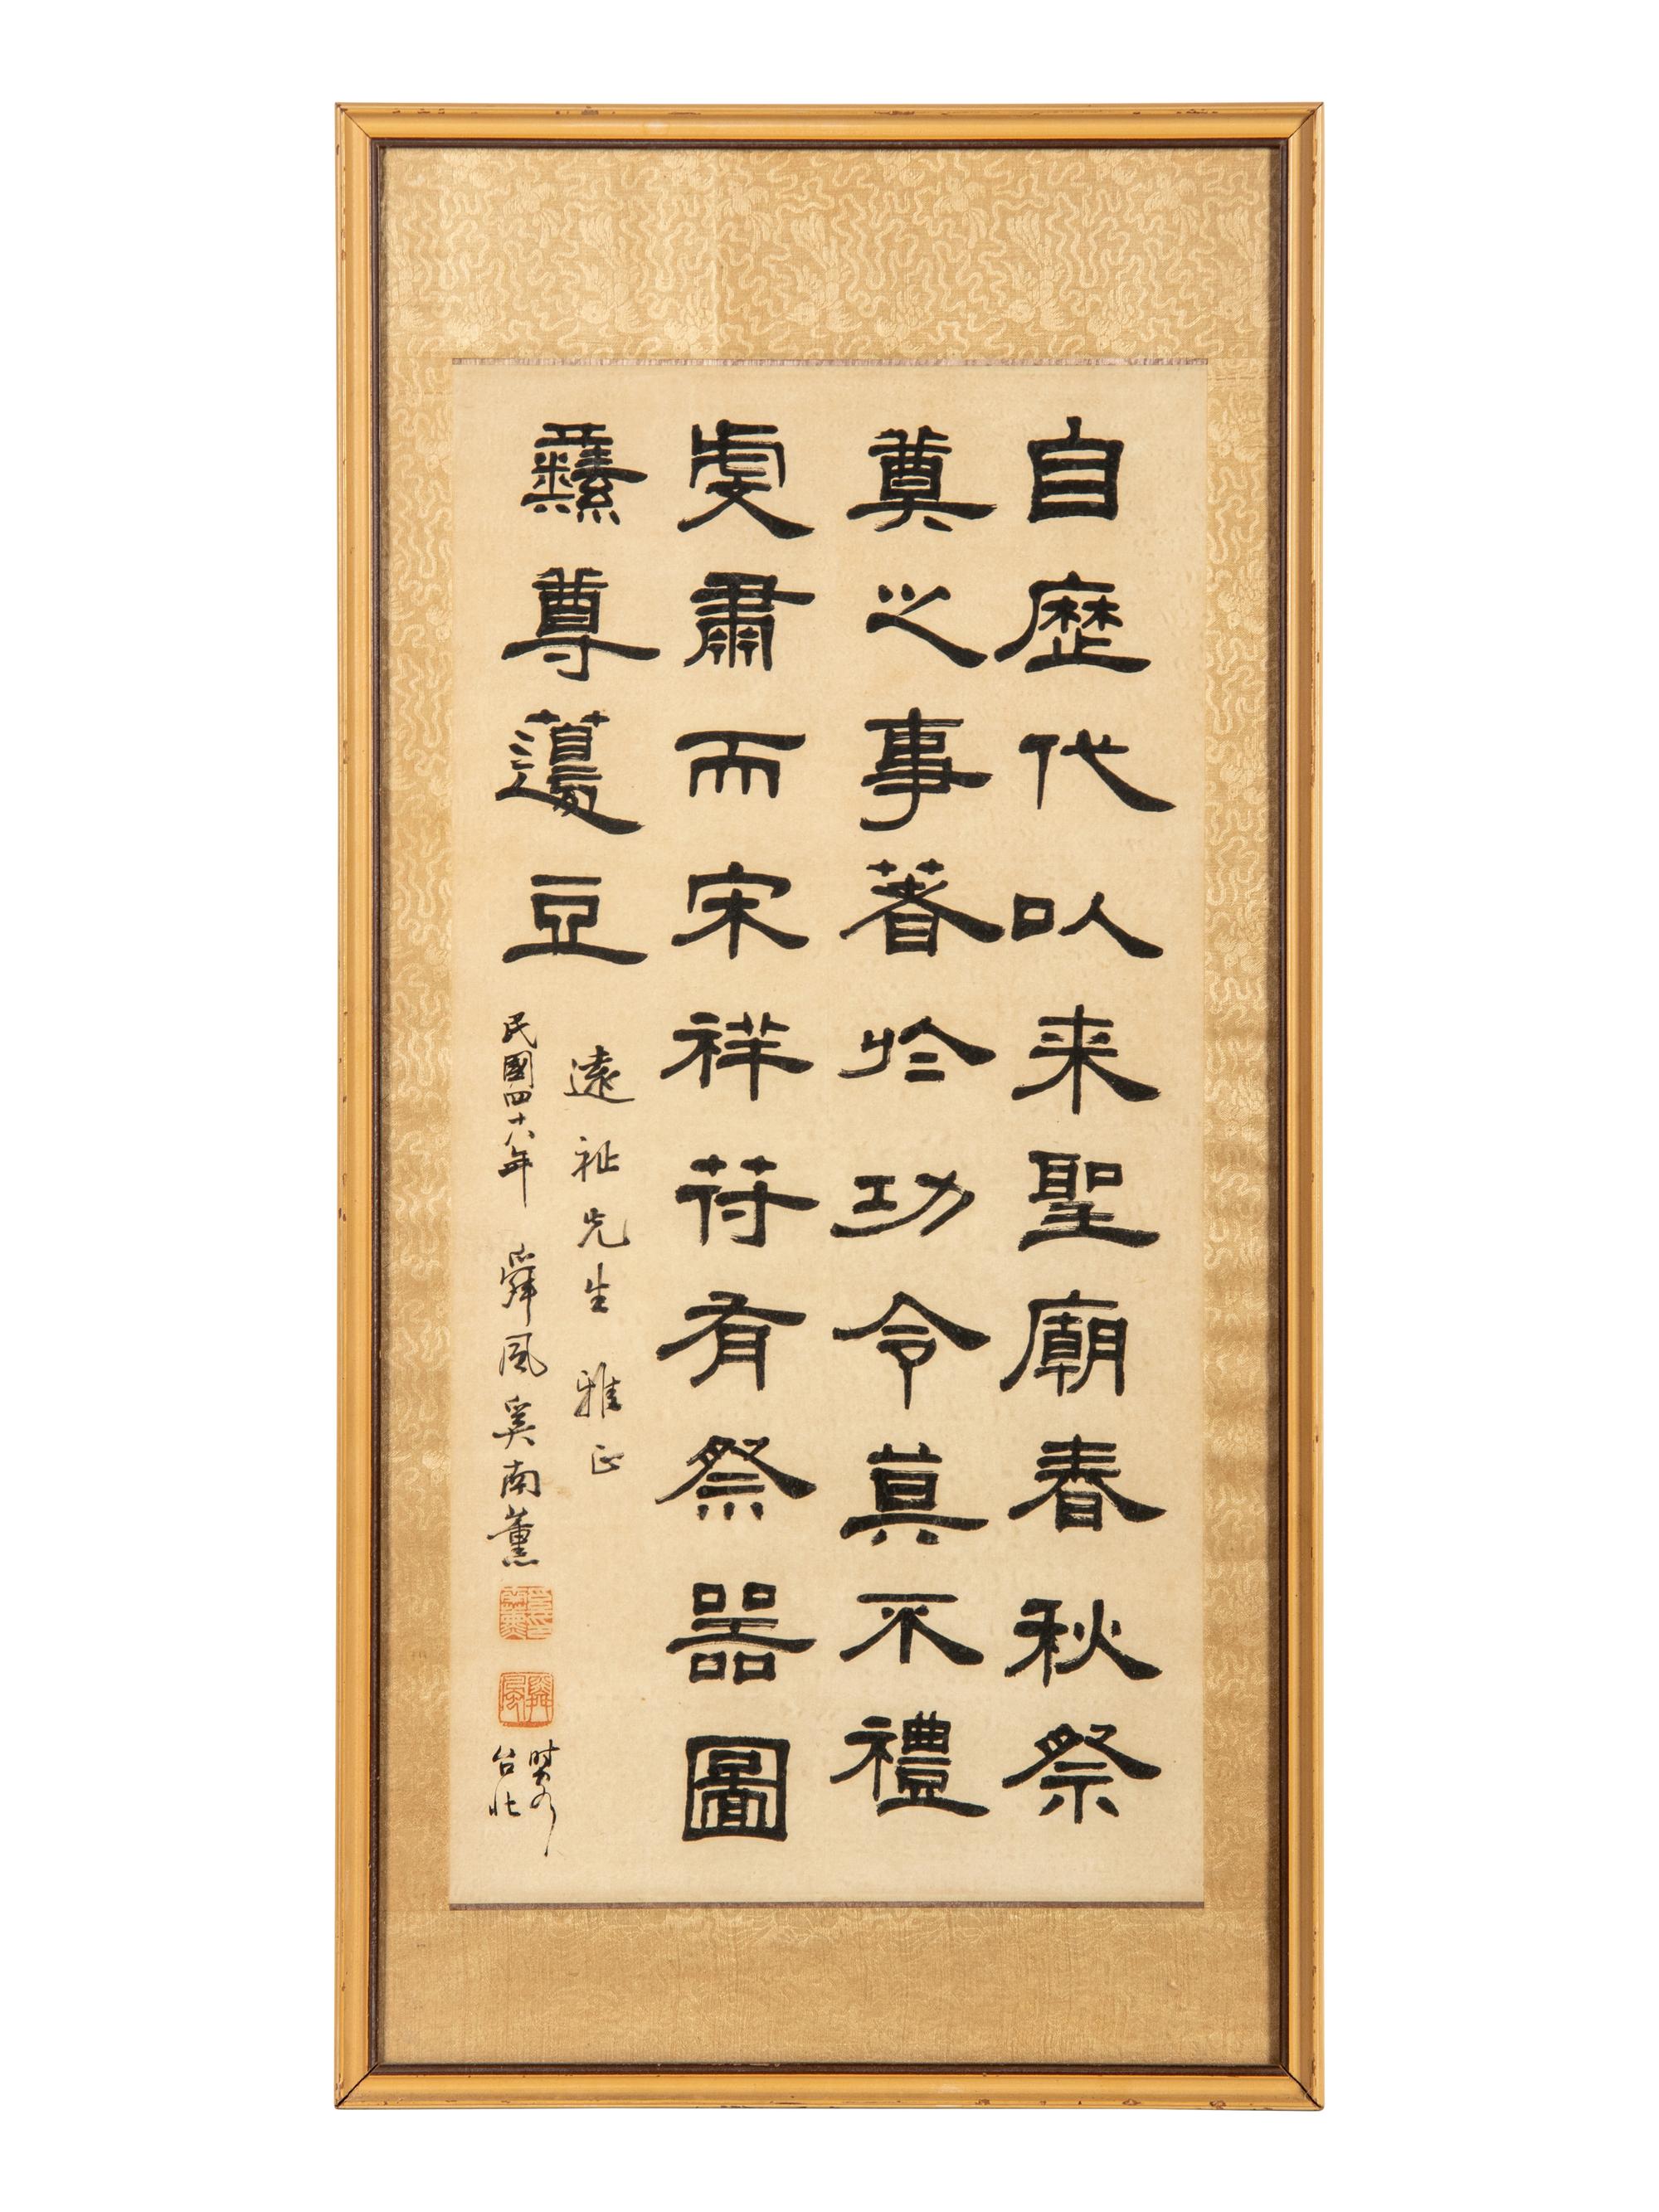 自歷代以来聖廟春秋祭
奠之事著於功令莫不禮
虔肅而宋祥符有祭器圖
彝尊籩豆
遠祉先生 雅正
民國四十八年 舜風奚南薰
時客
台北